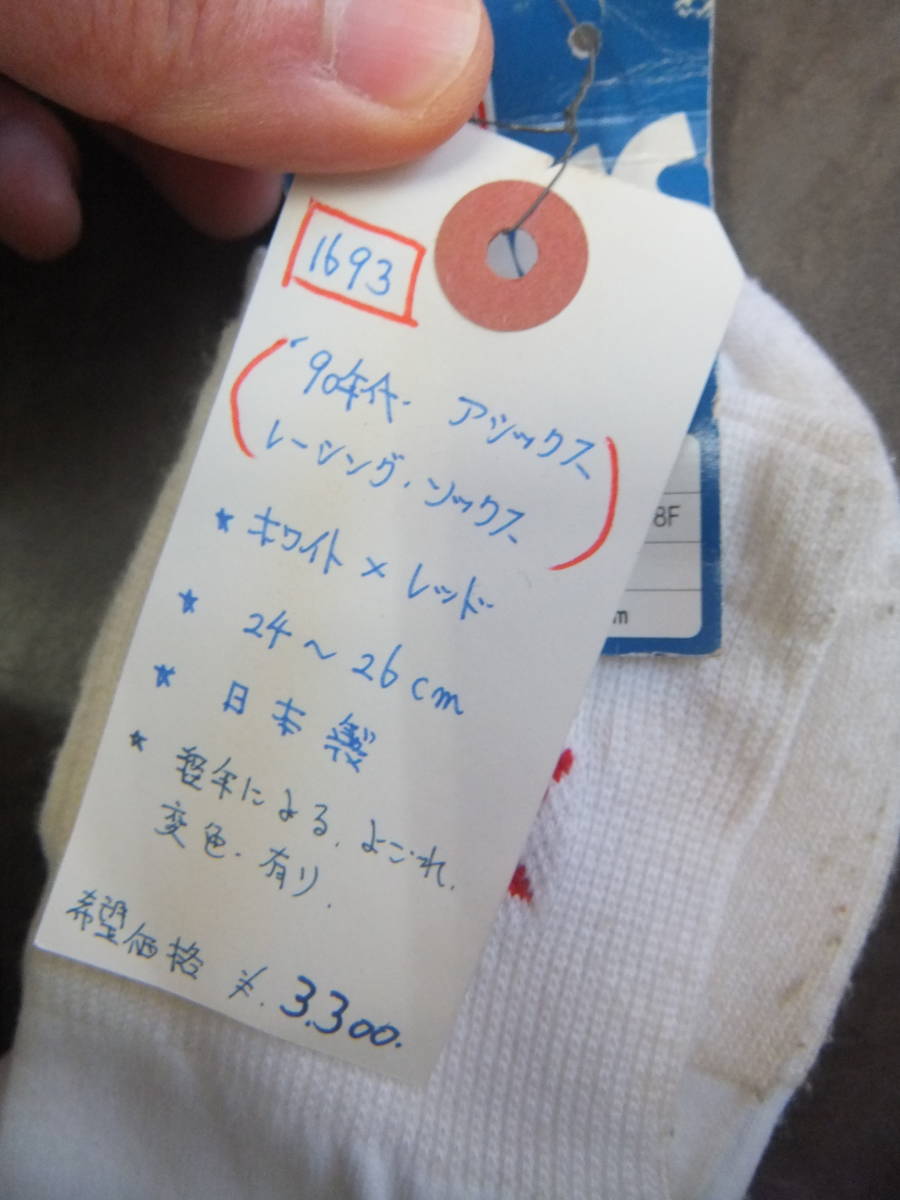 1693
'90年代. アシックス
レーシング.ソックス
★ ホワイト × レッド
★ 24～26cm
★ 日本製
★ 経年による.よごれ.
変色.有り.
希望価格 ¥.3.300.
8F
m